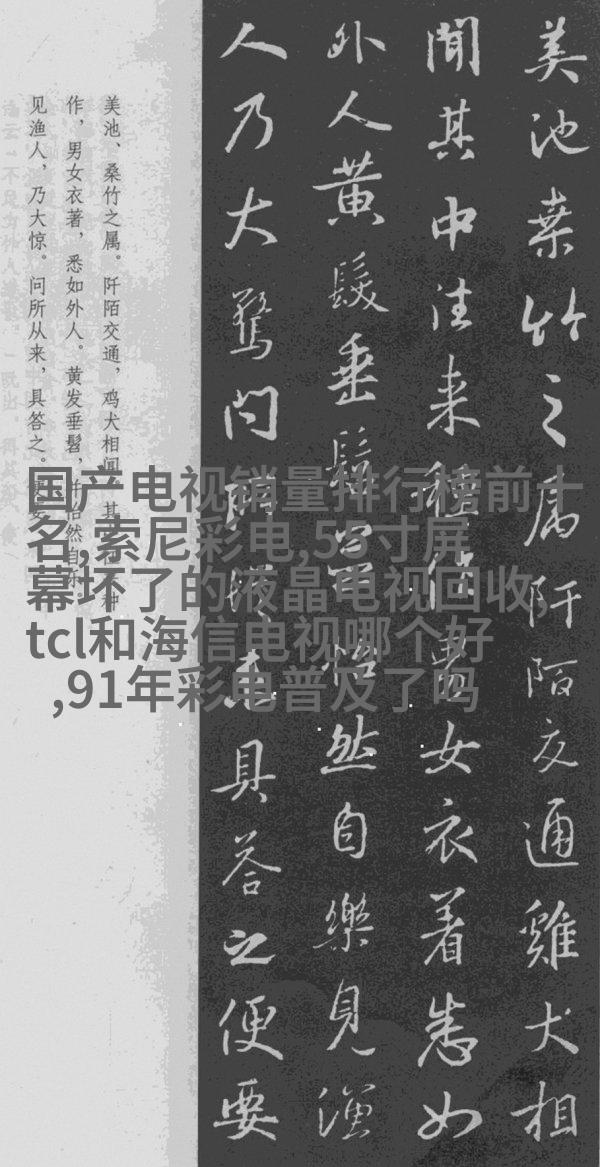 美池桑竹之属阡陌交通雞犬相
聞其中往来種作男女衣着悉如
外人黄髮垂髫並怡然自樂見漁
人乃大驚问所従来具荅之便要
美池、桑竹之属。阡陌交通，鸡犬相闻。其
作，男女衣著，悉如外人。黄发垂髫，并怡然自乐。
见渔人，乃大惊。问所从来，具答之。
国产电视销量排行榜前十
名,索尼彩电,55寸屏
幕坏了的液晶电视回收,
tcl和海信电视哪个好
,91年彩电普及了吗